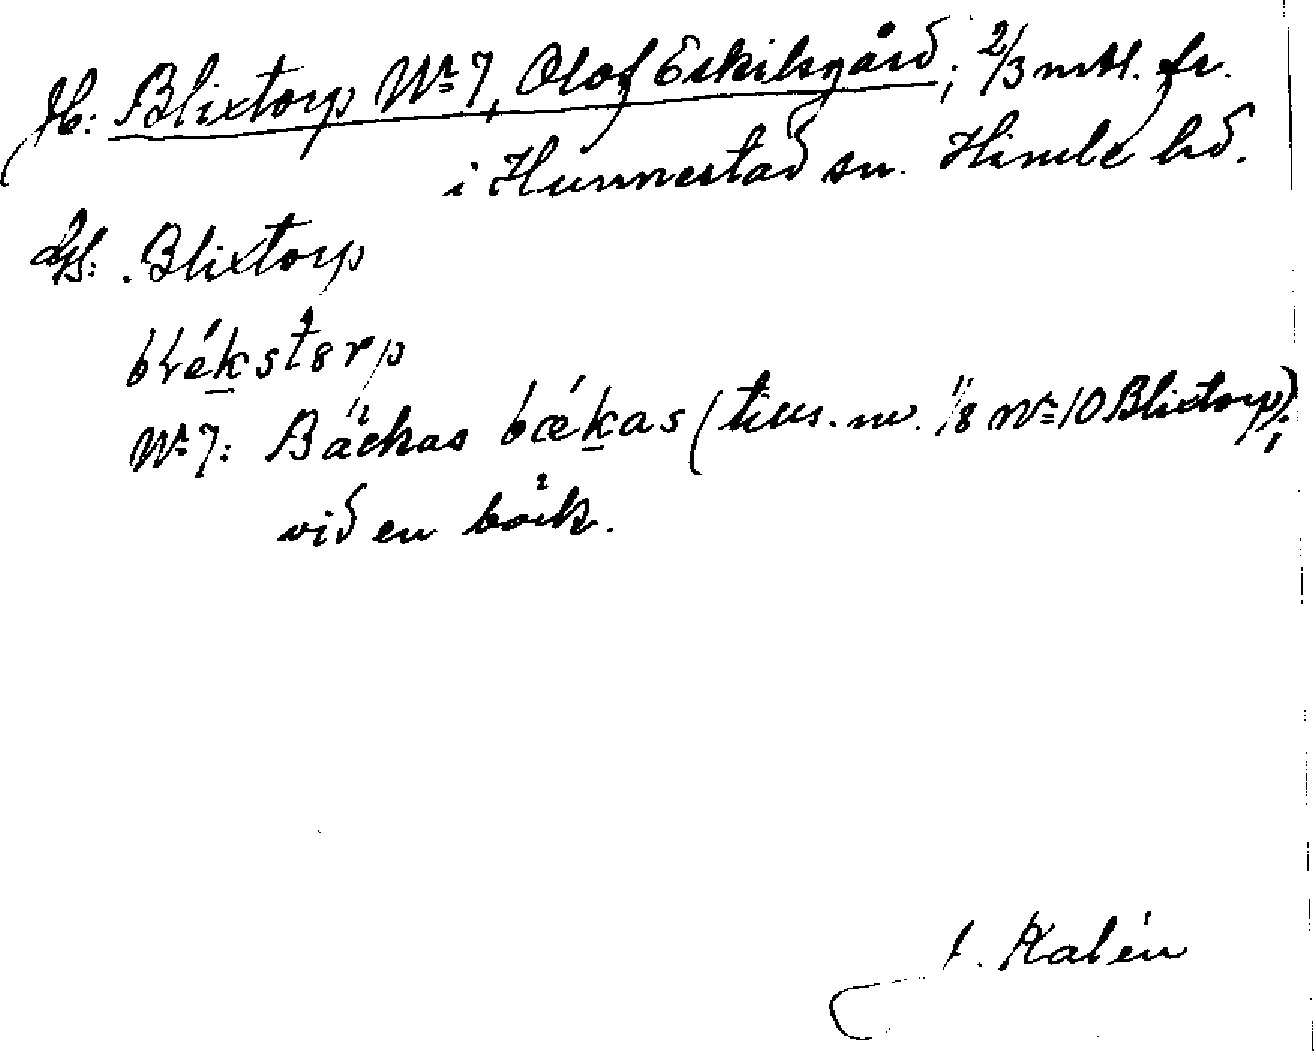 Jb: Blixtorp Nº 7, Olof Eskilsgård; 2/3 mtl. fr.
i Hunnestad sn. Himle hd.
Blixtorp
blékstorp
Nº 7: Bäckas bækas (tills. m. 1/8 Nº 10 Blixtorp);
vid en bäck.
Kalén